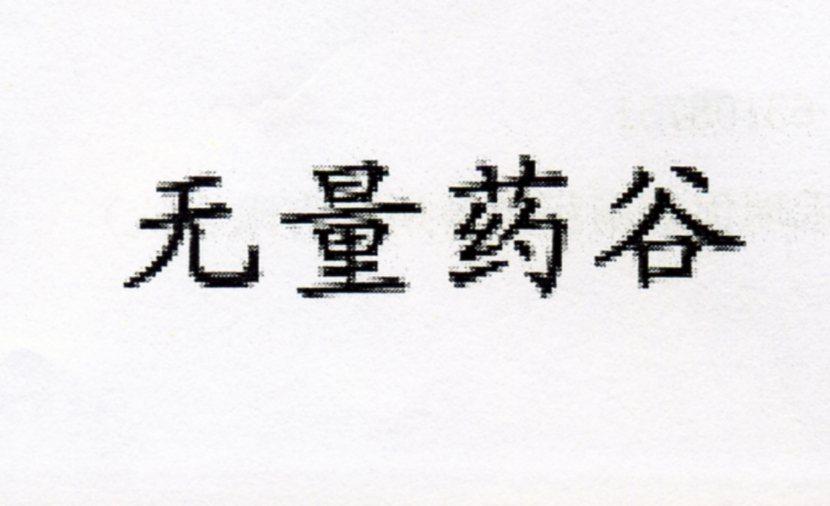 无量药谷